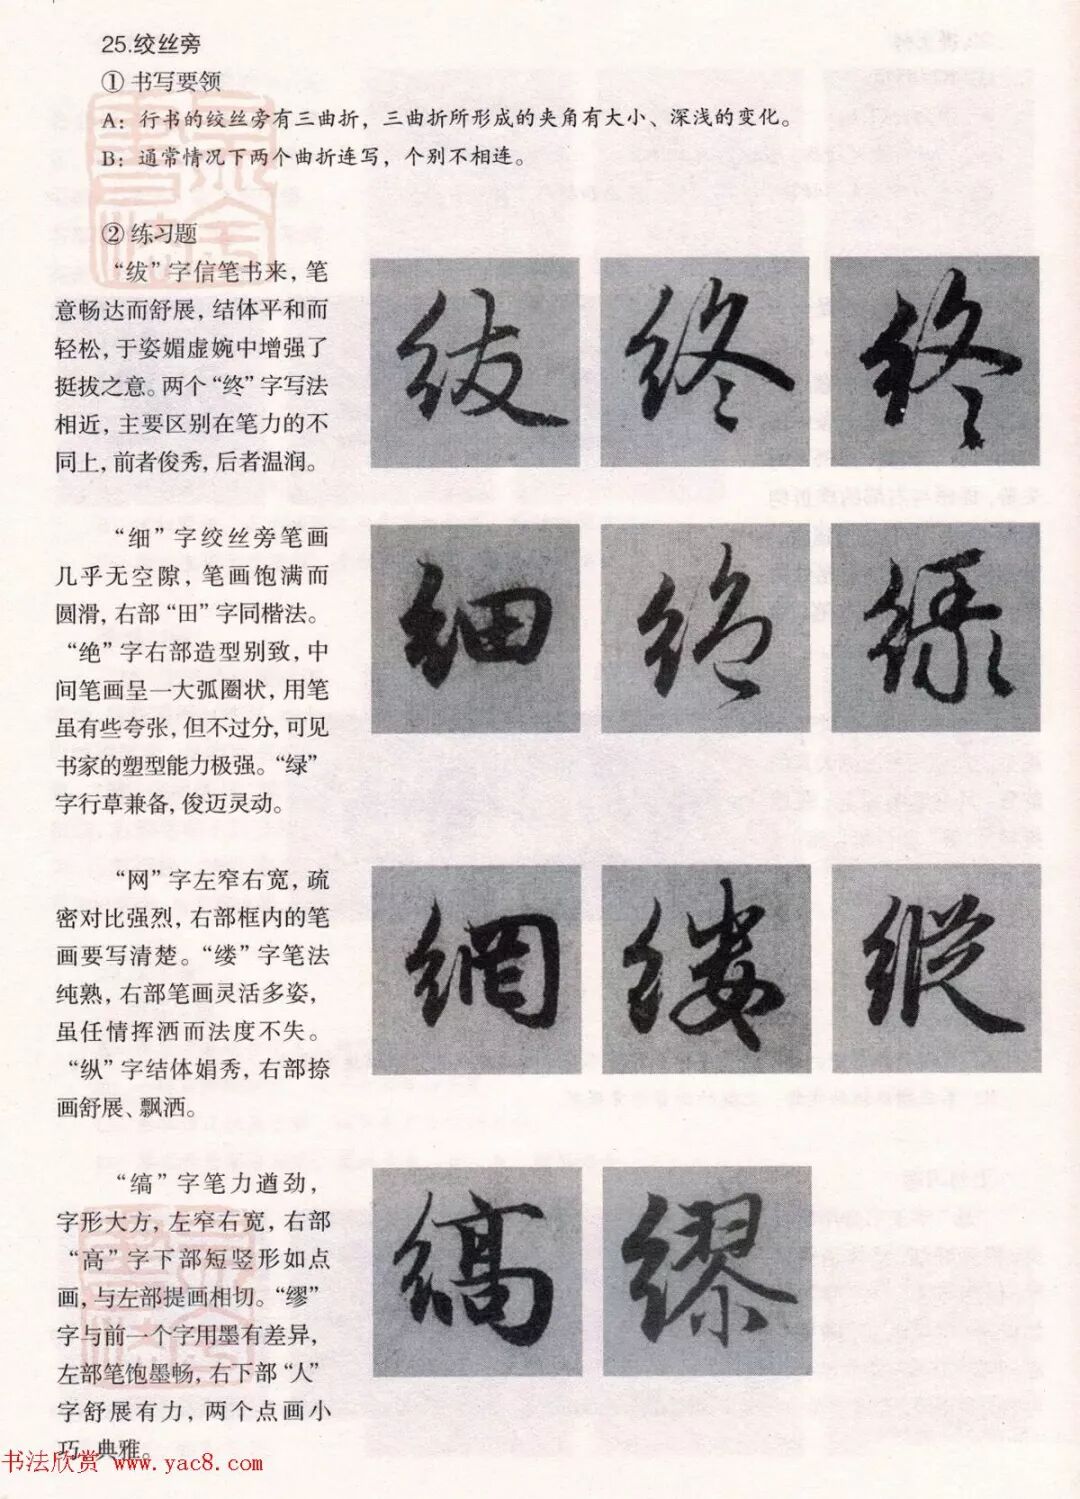 25.绞丝旁
① 书写要领
A：行书的绞丝旁有三曲折，三曲折所形成的夹角有大小、深浅的变化。
B：通常情况下两个曲折连写，个别不相连。
② 练习题
“绂”字信笔书来，笔
意畅达而舒展，结体平和而
轻松，于姿媚虚婉中增强了
挺拔之意。两个“终”字写法
相近，主要区别在笔力的不
同上，前者俊秀，后者温润。
紱 终 终
“细”字绞丝旁笔画
几乎无空隙，笔画饱满而
圆滑，右部“田”字同楷法。
“绝”字右部造型别致，中
间笔画呈一大弧圈状，用笔
虽有些夸张，但不过分，可见
书家的塑型能力极强。“绿”
字行草兼备，俊迈灵动。
細 絕 綠
“网”字左窄右宽，疏
密对比强烈，右部框内的笔
画要写清楚。“缕”字笔法
纯熟，右部笔画灵活多姿，
虽任情挥洒而法度不失。
“纵”字结体娟秀，右部捺
画舒展、飘洒。
網 縷 縱
“缟”字笔力遒劲，
字形大方，左窄右宽，右部
“高”字下部短竖形如点
画，与左部提画相切。“缪”
字与前一个字用墨有差异，
左部笔饱墨畅，右下部“人”
字舒展有力，两个点画小
巧、典雅。
縞 繆
书法欣赏 www.yac8.com